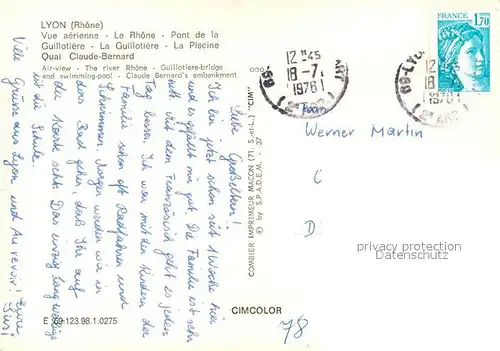 LYON (Rhône)
Vue aérienne - Le Rhône - Pont de la
Guillotière - La Guillotière - La Piscine
Quai Claude-Bernard
Air-view - The river Rhône - Guillotière-bridge
and swimming-pool - Claude Bernard's embankment
FRANCE
1,70
69-LYON
12 H 45
18 -7
1978
12 H 45
18 -7
1978
Fam.
Werner Martin
D
Liebe Großeltern!
Ich bin jetzt schon seit 1 Woche hier
und es gefällt mir gut. Die Familie ist sehr
nett. Mit dem Französisch geht es jeden
Tag besser. Ich war mit den Kindern der
Familie schon oft Radfahren und
Schwimmen. Morgen werden wir in
das Bad gehen, das Ihr auf
der Karte seht. Das einzig langweilige
ist die Schule.
Viele Grüße aus Lyon und Au revoir! Eure
COMBIER IMPRIMEUR MACON (71. S.-et-L.) "CIM"
© by S.P.A.D.E.M. 1.37
privacy protection
Datenschutz
CIMCOLOR
E 69.123.98.1.0275
78